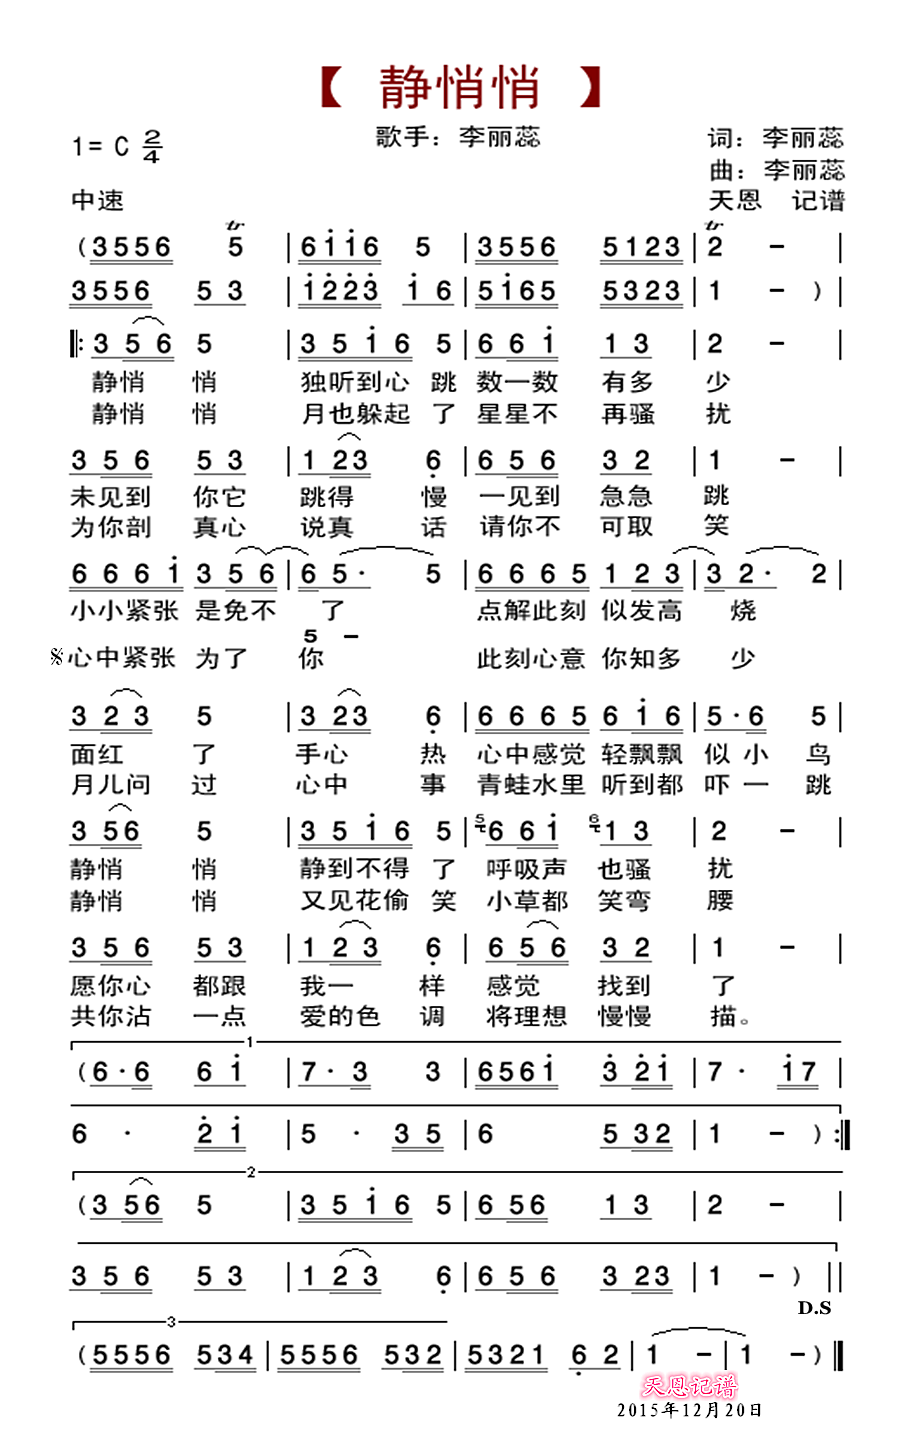 【 静悄悄 】
1= C 2/4
歌手：李丽蕊
词：李丽蕊
曲：李丽蕊
中速
天恩 记谱
(3556 5 |6i i6 5 |3556 5123|2 - |
3556 53 |i223 i6|5i65 5323|1 - )|
‖:356 5 |35i6 5|66i 13 |2 - |
静悄 悄 独听到心 跳 数一数 有多 少
静悄 悄 月也躲起 了 星星不 再骚 扰
356 53 |123 6|656 32 |1 - |
未见到 你它 跳得 慢 一见到 急急 跳
为你剖 真心 说真 话 请你不 可取 笑
666i 356|65· 5|6665 123|32· 2|
小小紧张 是免不 了 点解此刻 似发高 烧
5 -
𝄋心中紧张 为了 你 此刻心意 你知多 少
323 5 |323 6|6665 6i6|5·6 5|
面红 了 手心 热 心中感觉 轻飘飘 似小 鸟
月儿问 过 心中 事 青蛙水里 听到都 吓一 跳
356 5 |35i6 5|5 66i 6 13 |2 - |
静悄 悄 静到不得 了 呼吸声 也骚 扰
静悄 悄 又见花偷 笑 小草都 笑弯 腰
356 53 |123 6|656 32 |1 - |
愿你心 都跟 我一 样 感觉 找到 了
共你沾 一点 爱的色 调 将理想 慢慢 描。
1
(6·6 6i |7·3 3|656i 32i|7· i7|
6 · 2i |5 · 35|6 532|1 - ):‖
2
(356 5 |35i6 5|656 13 |2 - |
356 53 |123 6|656 323|1 - )‖
D.S
3
(5556 534|5556 532|5321 62|1 -|1 -)‖
天恩记谱
2015年12月20日